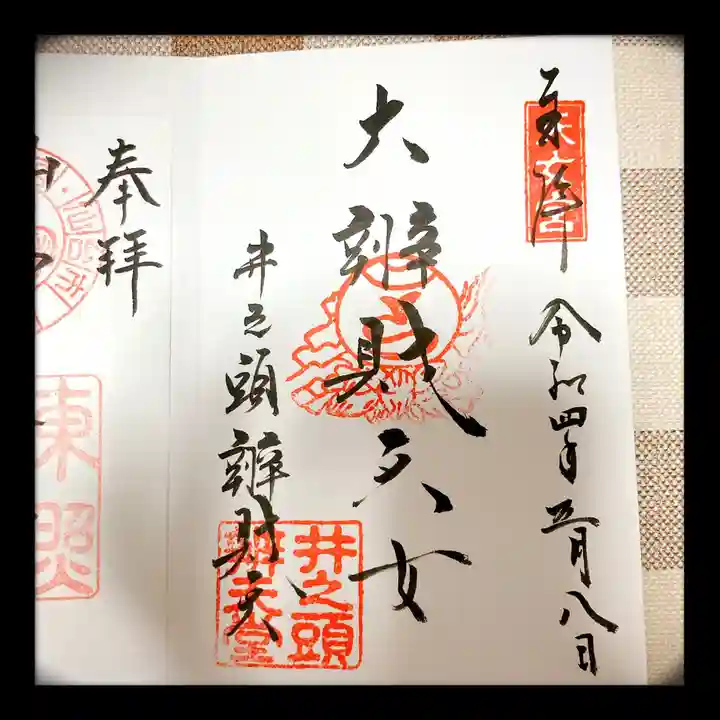 奉拝
令和四年五月八日
大辨財天女
井之頭辨財天
井之頭
辨天堂
奉拝
東照